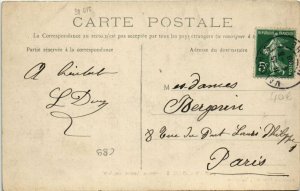 CARTE POSTALE
La Correspondance au recto n'est pas acceptée par tous les pays étrangers (se renseigner à
Partie réservée à la correspondance
Adresse du destinataire
A bientôt
Mesdames
Bergerin
8 Rue du Pont Louis Philippe
Paris